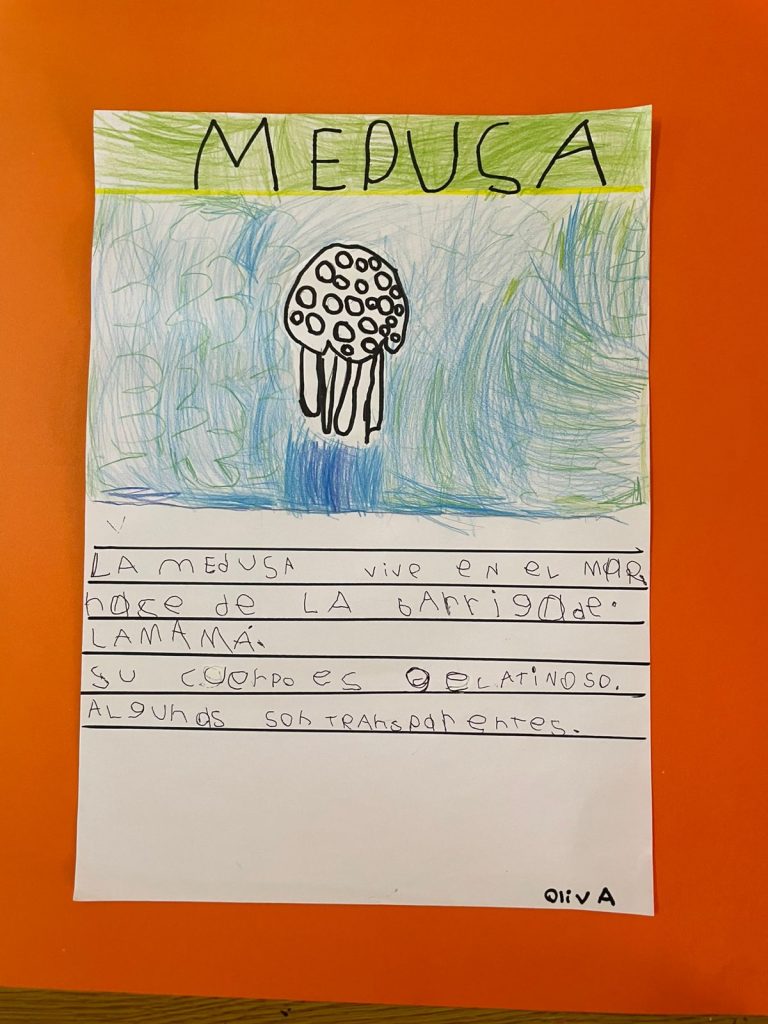 MEDUSA
LA MEdUSA vive EN eL MAR
nace de LA bArrigade.
LAMAMÁ.
SU CUerpo es GeLATiNOSO.
ALgUnas son TRAnsparentes.
OlivA